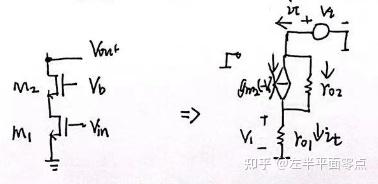 Vout
M2
Vb
M1
Vin
=>
it
+ Vt -
gm2(-V1)
ro2
+
V1
-
ro1
it
知乎 @左半平面零点